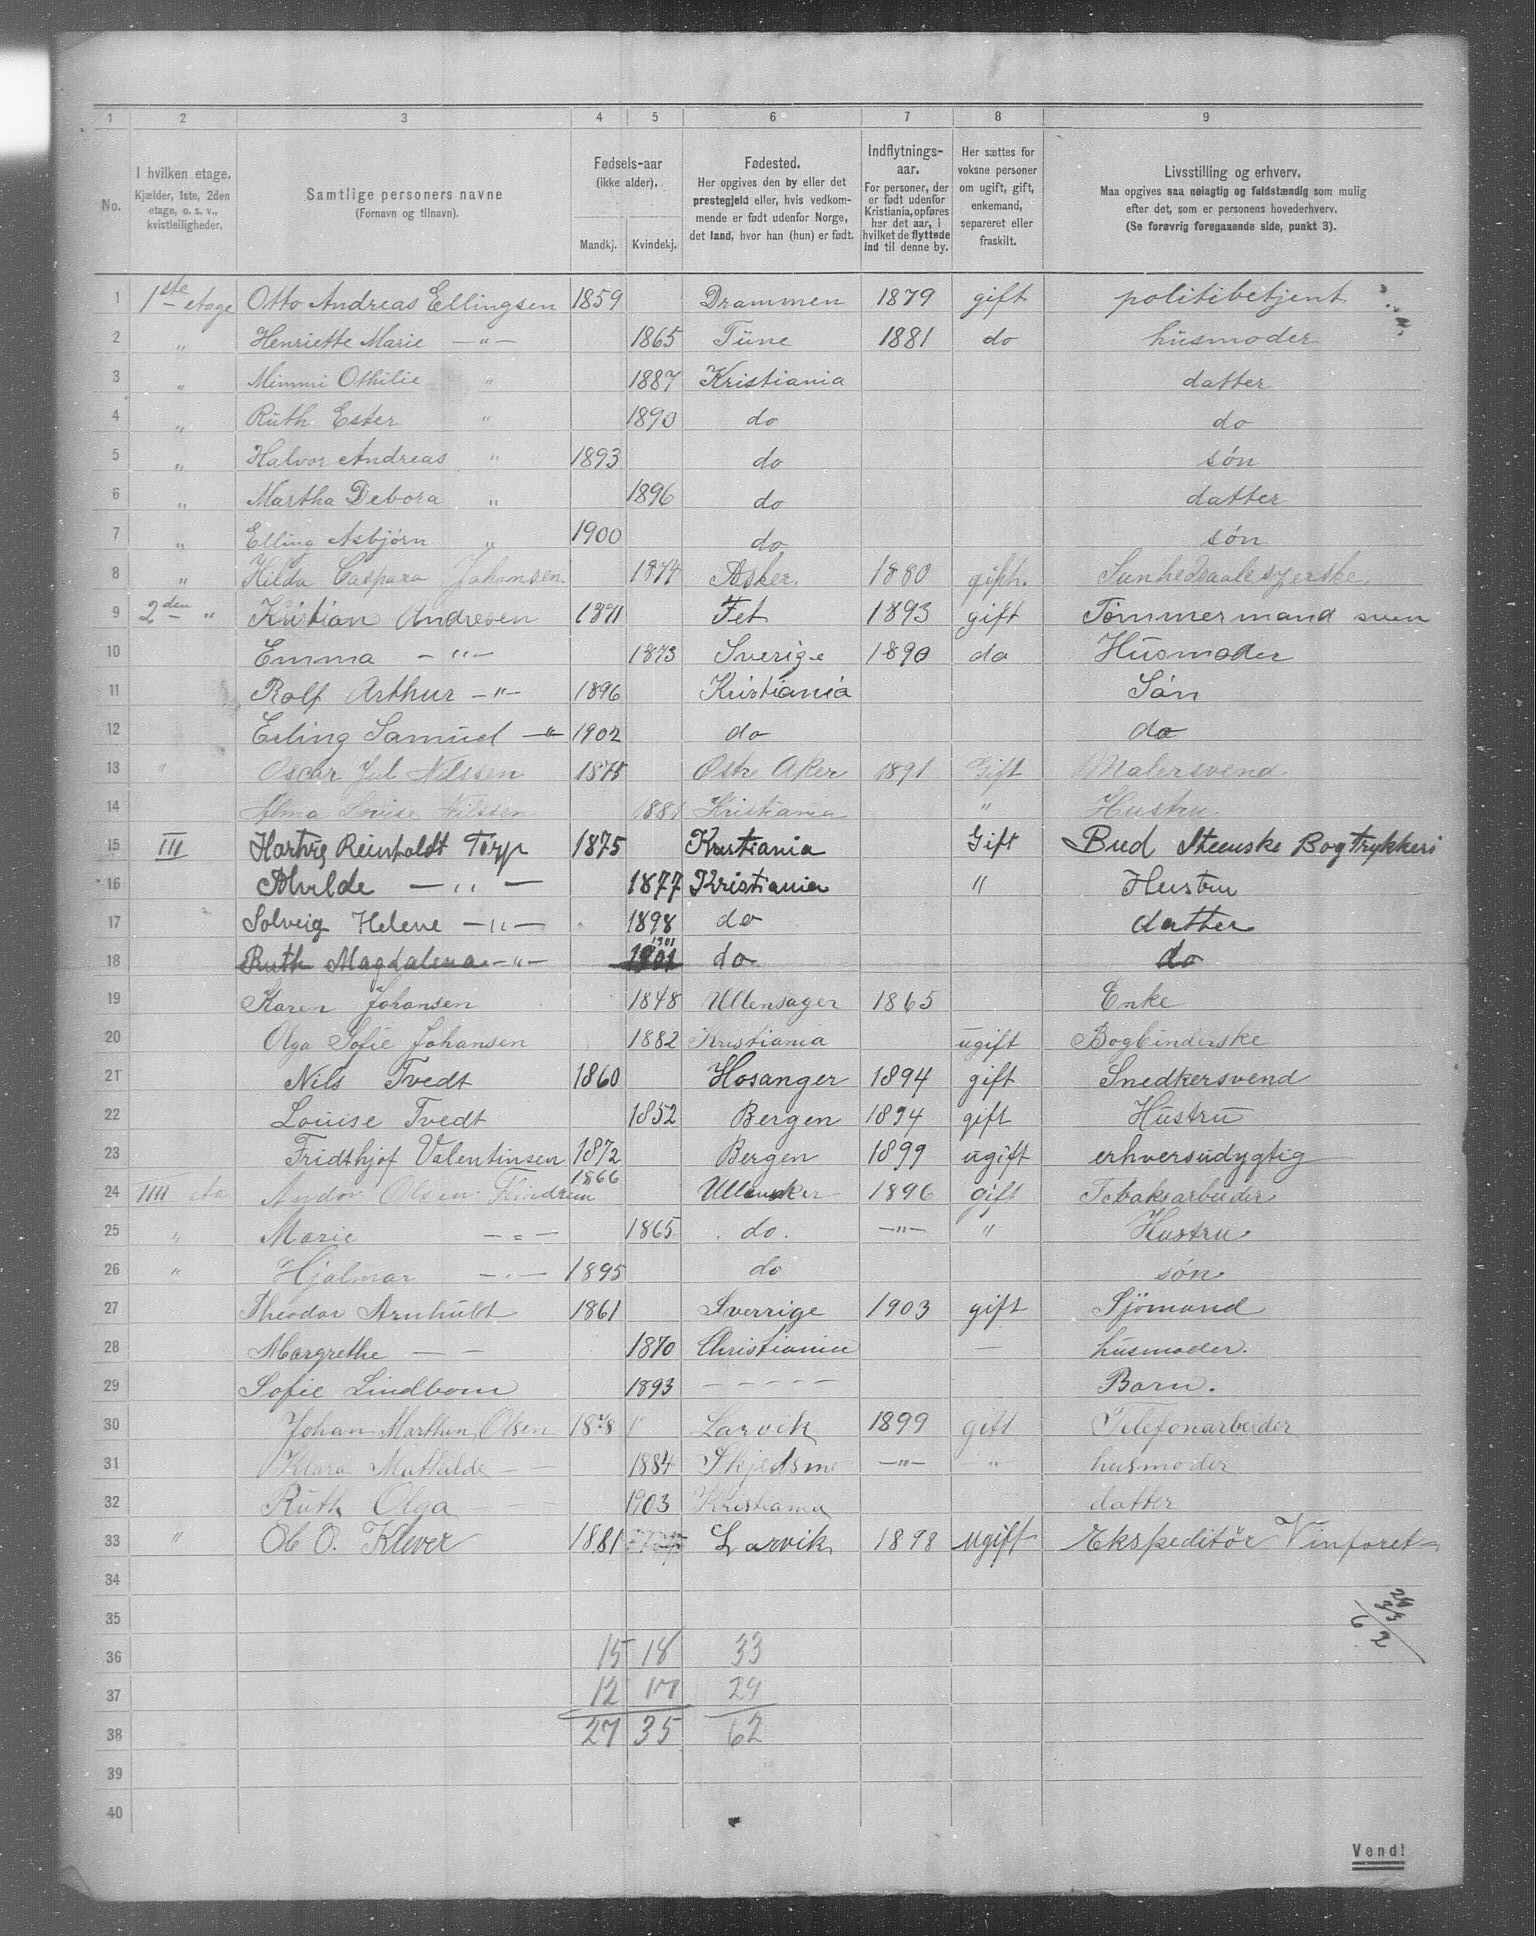 1 2 3 4 5 6 7 8 9
No. I hvilken etage. Kjælder, 1ste, 2den etage, o. s. v., kvistleiligheder. Samtlige personers navne (Fornavn og tilnavn). Fødsels-aar (ikke alder). Mandkj. Kvindekj. Fødested. Her opgives den by eller det prestegjeld eller, hvis vedkommende er født udenfor Norge, det land, hvor han (hun) er født. Indflytnings-aar. For personer, der er født udenfor Kristiania, opføres her det aar, i hvilket de flyttede ind til denne by. Her sættes for voksne personer om ugift, gift, enkemand, separeret eller fraskilt. Livsstilling og erhverv. Maa opgives saa nøiagtig og fuldstændig som mulig efter det, som er personens hovederhverv. (Se forøvrig foregaaende side, punkt 3).
1 1ste etage Otto Andreas Ellingsen 1859 Drammen 1879 gift politibetjent
2 „ Henriette Marie —"— 1865 Tune 1881 do husmoder
3 „ Mimmi Othilie " 1887 Kristiania datter
4 „ Ruth Ester " 1890 do do
5 „ Halvor Andreas " 1893 do søn
6 „ Martha Debora " 1896 do datter
7 „ Elling Asbjørn " 1900 do søn
8 „ Hilda Caspara Johansen 1874 Asker. 1880
9 2den " Kristian Andresen 1871 Fet 1893 gift Tømmermand sven
10 Emma —"— 1873 Sverige 1890 do Husmoder
11 Rolf Arthur —"— 1896 Kristiania Søn
12 Erling Samuel —"— 1902 do do
13 " Oscar Jul Nilssen 1875 Østre Aker 1891 Gift Malersvend
14 Alma Lovise Nilssen 1881 Kristiania " Hustru
15 III Hartvig Reinholdt Torp 1875 Kristiania Gift Bud Steenske Bogtrykkeri
16 Alvilde —"— 1877 Kristiania " Hustru
17 Solveig Helene —"— 1898 do datter
18 Ruth Magdalena —"— 1901 1901 do do
19 Karen Johansen 1848 Ullensager 1865 Enke
20 Olga Sofie Johansen 1882 Kristiania ugift Bogbinderske
21 Nils Tvedt 1860 Hosanger 1894 gift Snedkersvend
22 Louise Tvedt 1852 Bergen 1894 gift Hustru
23 Fridthjof Valentinsen 1872 Bergen 1899 ugift erhversudygtig
24 IIII do Andor Olsen 1866 1896 gift Tobaksarbeider
25 „ Marie —"— 1865 do. —"— " Hustru
26 " Hjalmar —"— 1895 do søn
27 Theodor Arnhuldt 1861 Sverrige 1903 gift Sjömand
28 Margrethe — — 1870 Christiania — husmoder.
29 Sofie Lindbom 1893 — — — — — Barn.
30 Johan Marthin Olsen 1878 Larvik 1899 gift Telefonarbeider
31 Klara Mathilde — — 1884 Skjedsmo —"— " husmoder
32 Ruth Olga — — 1903 Kristiania datter
33 " Ole O. Klever 1881 Larvik 1898 ugift Ekspeditör Vinforet-
34
35
36 15 18 33
37 12 17 29
38 27 35 62
39
40
Vend!